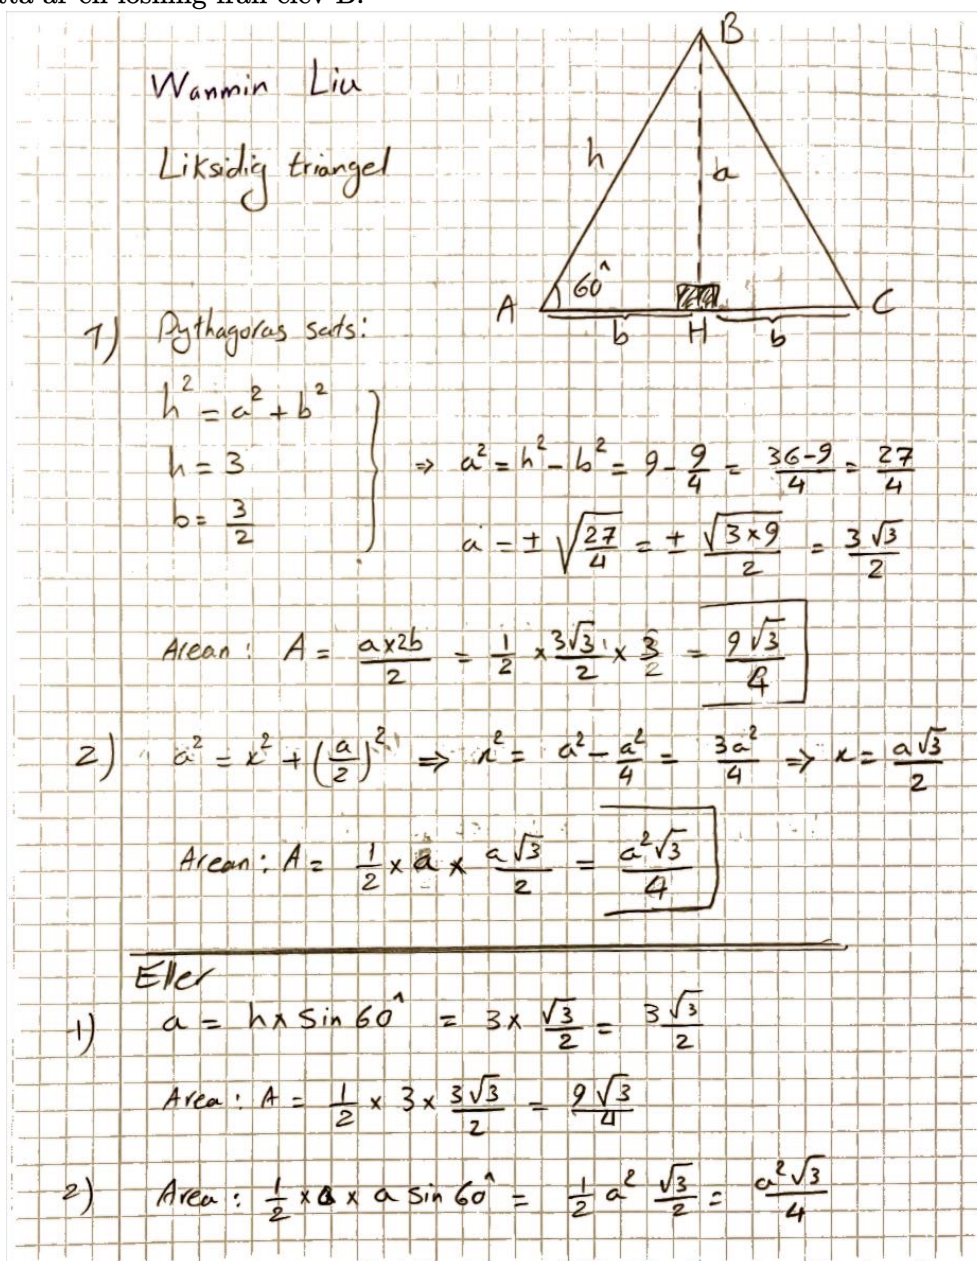 Detta är en lösning från elev B.
B
Wanmin Liu
h
a
Liksidig triangel
60^
A
C
b H b
1) Pythagoras sats:
h² = a² + b²
h = 3 ⇒ a² = h² - b² = 9 - 9/4 = 36-9/4 = 27/4
b = 3/2
a = ± √27/4 = ± √3×9/2 = 3√3/2
Arean: A = a×2b/2 = 1/2 × 3√3/2 × 3/2 = 9√3/4
2) a² = x² + (a/2)² ⇒ x² = a² - a²/4 = 3a²/4 ⇒ x = a√3/2
Arean: A = 1/2 × a × a√3/2 = a²√3/4
Eller
1) a = h × sin 60^ = 3 × √3/2 = 3√3/2
Area: A = 1/2 × 3 × 3√3/2 = 9√3/4
2) Area: 1/2 × a × a sin 60^ = 1/2 a² √3/2 = a²√3/4